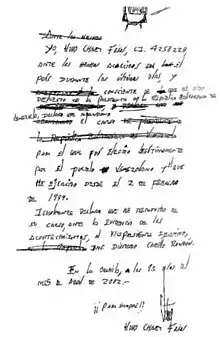 Ante los hechos
Yo, Hugo Chávez Frías, C.I. 4258228
ante los hechos acaecidos en el
país durante los últimos días, y
consciente de que he sido
depuesto de la presidencia de la República Bolivariana de
Venezuela, declaro que abandono
el cargo
la República Bolivariana
para el que fui electo legítimamente
por el pueblo venezolano y que
he ejercido desde el 2 de febrero
de 1999.
Igualmente declaro que he removido de
su cargo, ante la evidencia de los
acontecimientos, al Vicepresidente Ejecutivo,
Ing. Diosdado Cabello Rondón.
En la Orchila, a los 13 días del
mes de abril de 2002.-
¡¡Para siempre!!
Hugo Chávez Frías